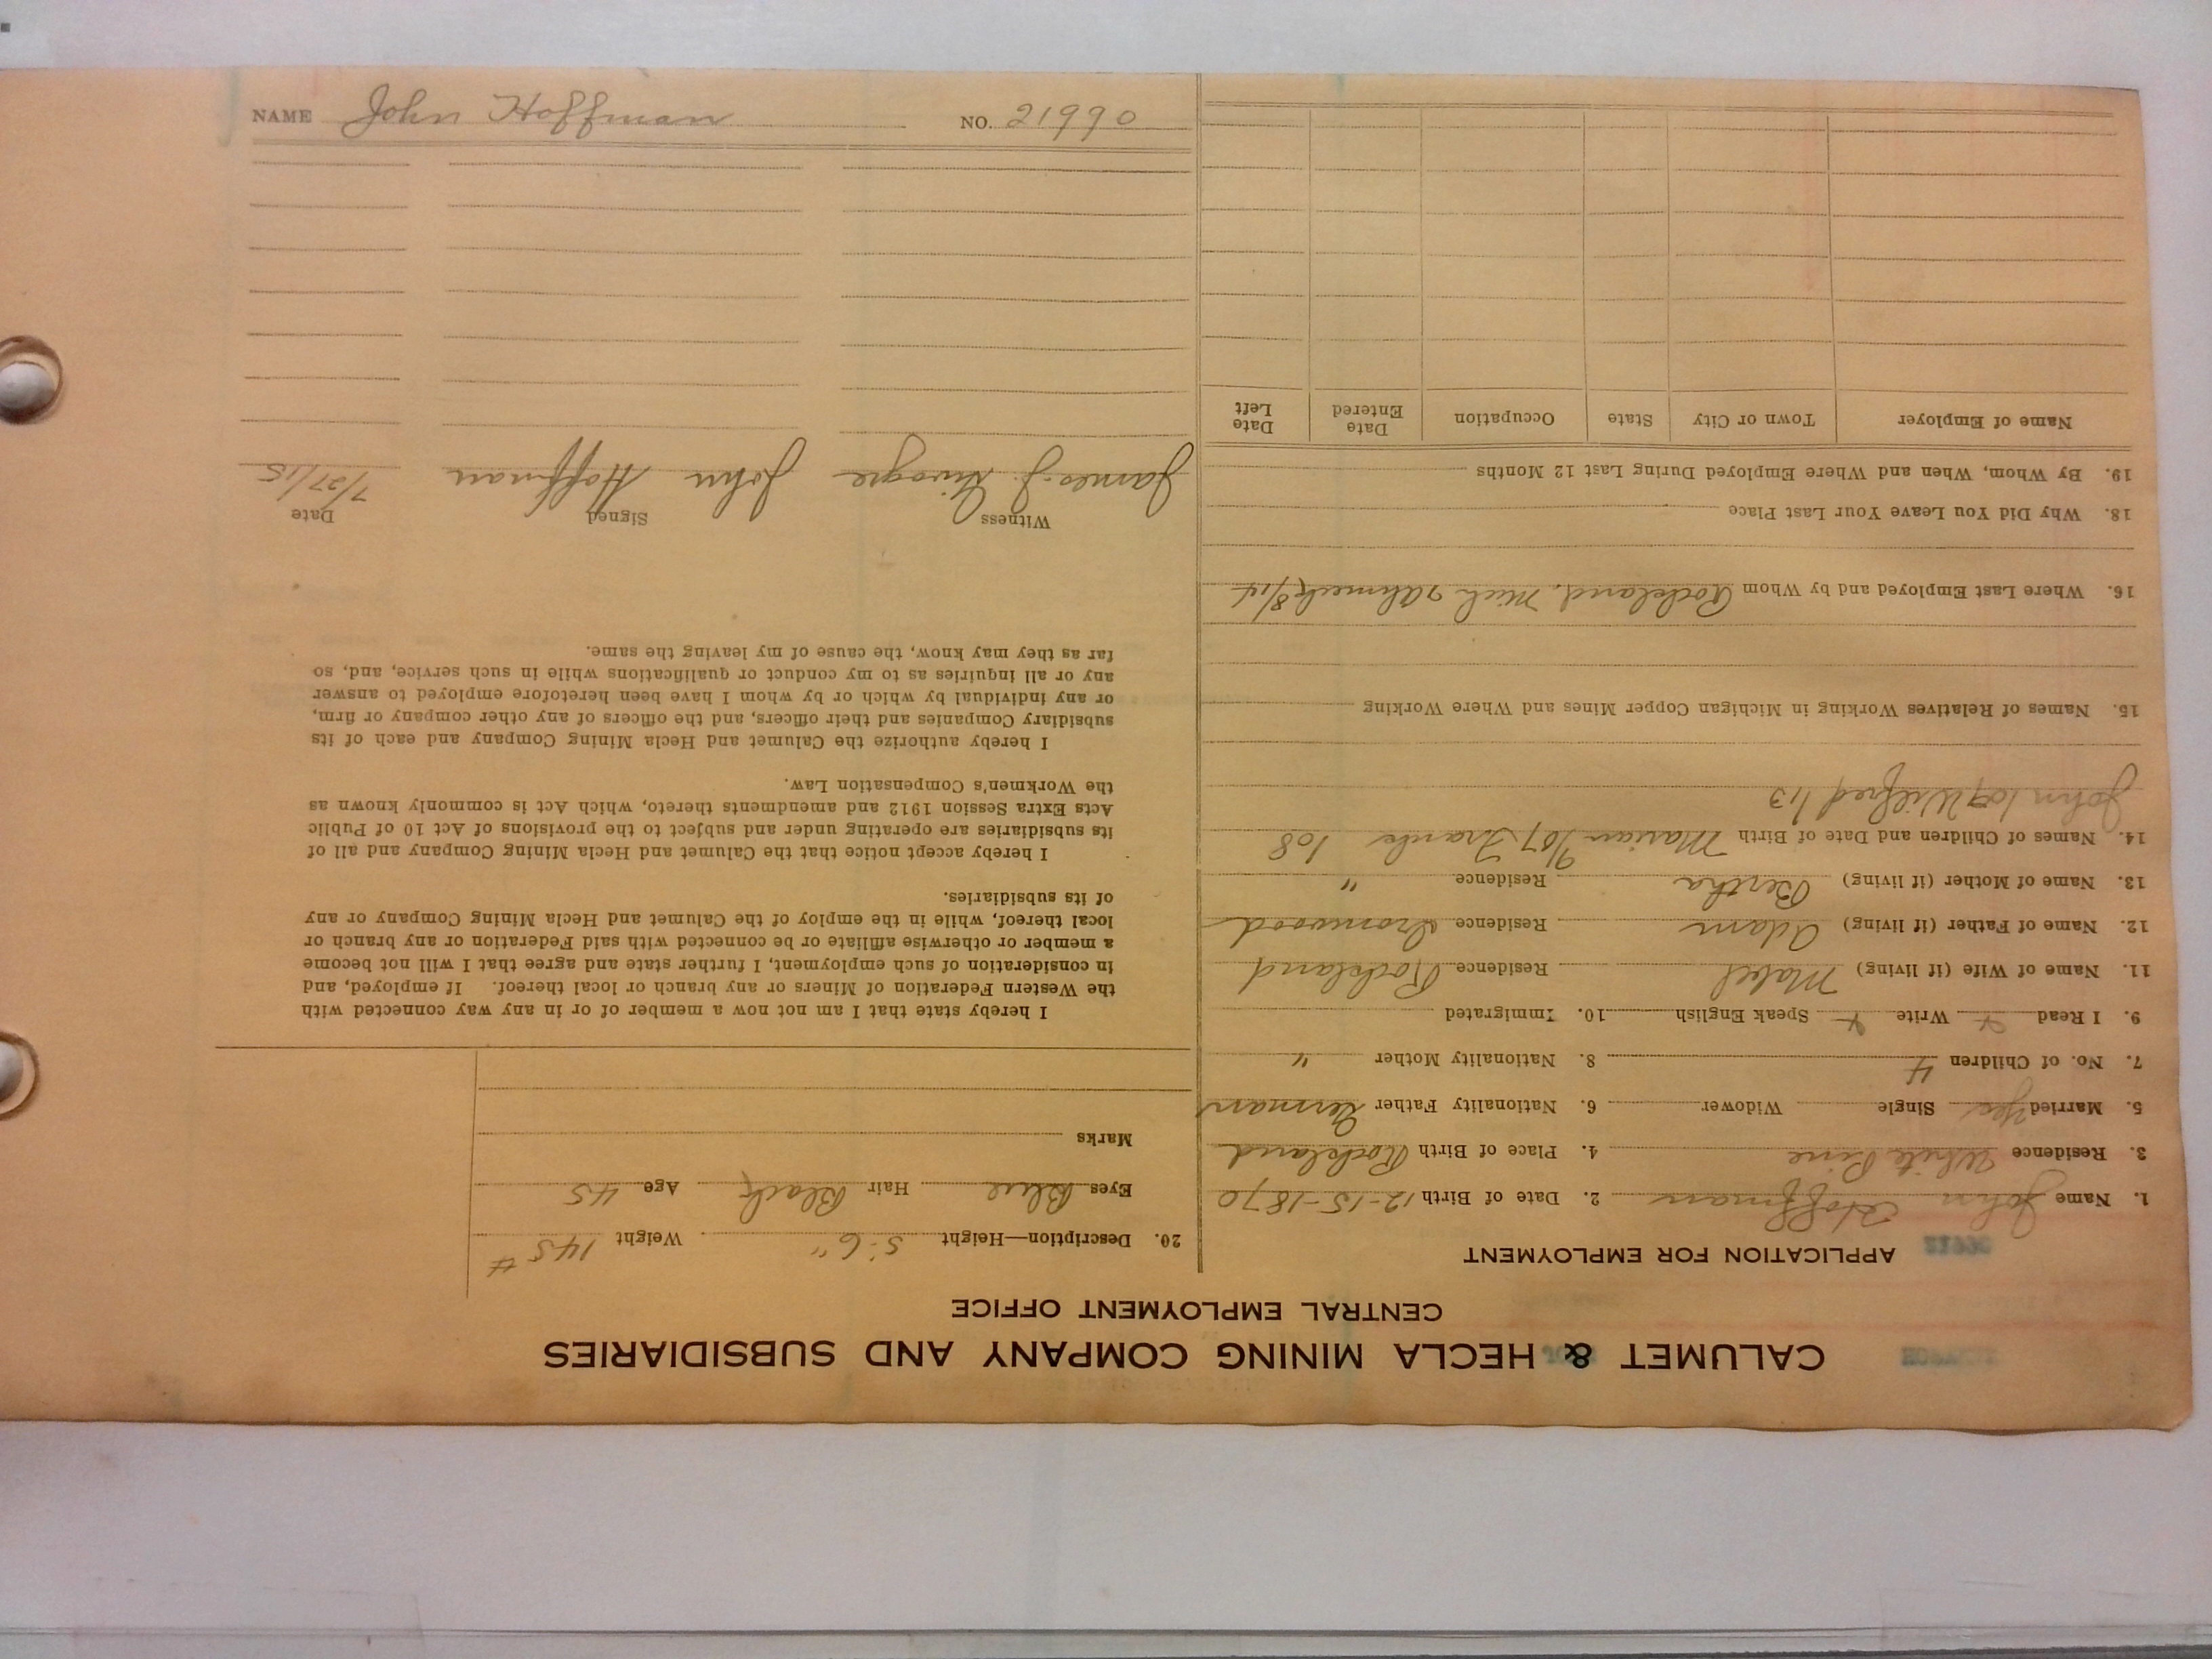 CALUMET & HECLA MINING COMPANY AND SUBSIDIARIES
CENTRAL EMPLOYMENT OFFICE
APPLICATION FOR EMPLOYMENT
1. Name John Hoffman 2. Date of Birth 12-15-1870
3. Residence White Pine 4. Place of Birth Rockland
5. Married Yes Single Widower 6. Nationality Father German
7. No. of Children 4 8. Nationality Mother "
9. I Read Write Speak English 10. Immigrated
11. Name of Wife (if living) Mabel Residence Rockland
12. Name of Father (if living) Adam Residence Ironwood
13. Name of Mother (if living) Bertha Residence "
14. Names of Children and Date of Birth Marian 9/07 Frank 108
John 109 Wilfred 1/13
15. Names of Relatives Working in Michigan Copper Mines and Where Working
16. Where Last Employed and by Whom Rockland, Mich Ahmeek 8/14
18. Why Did You Leave Your Last Place
19. By Whom, When and Where Employed During Last 12 Months
Name of Employer Town or City State Occupation Date Entered Date Left
20. Description—Height 5'-6" Weight 145 #
Eyes Blue Hair Black Age 45
Marks
I hereby state that I am not now a member of or in any way connected with
the Western Federation of Miners or any branch or local thereof. If employed, and
in consideration of such employment, I further state and agree that I will not become
a member or otherwise affiliate or be connected with said Federation or any branch or
local thereof, while in the employ of the Calumet and Hecla Mining Company or any
of its subsidiaries.
I hereby accept notice that the Calumet and Hecla Mining Company and all of
its subsidiaries are operating under and subject to the provisions of Act 10 of Public
Acts Extra Session 1912 and amendments thereto, which Act is commonly known as
the Workmen's Compensation Law.
I hereby authorize the Calumet and Hecla Mining Company and each of its
subsidiary Companies and their officers, and the officers of any other company or firm,
or any individual by which or by whom I have been heretofore employed to answer
any or all inquiries as to my conduct or qualifications while in such service, and, so
far as they may know, the cause of my leaving the same.
Witness Signed Date
James J. John Hoffman 7/27/15
NAME John Hoffman NO. 21990